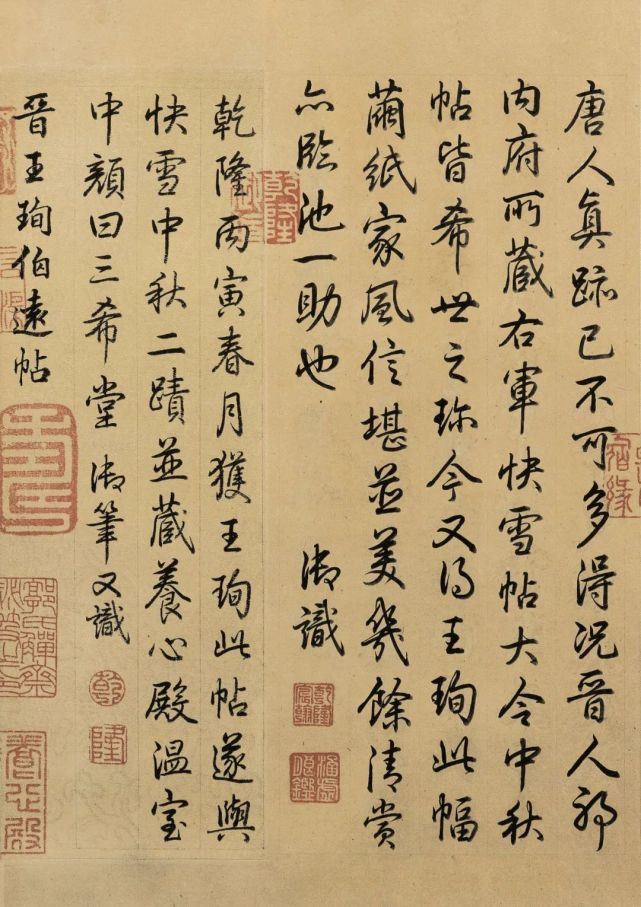 唐人眞跡已不可多得況晉人耶
内府所藏右軍快雪帖大令中秋
帖皆希世之珎今又得王珣此幅
繭紙家風信堪並美幾餘清賞
亦臨池一助也 御識
乾隆宸翰
乾隆丙寅春月獲王珣此帖遂與
快雪中秋二蹟並藏養心殿温室
中顏曰三希堂 御筆又識
乾
隆
晉王珣伯遠帖